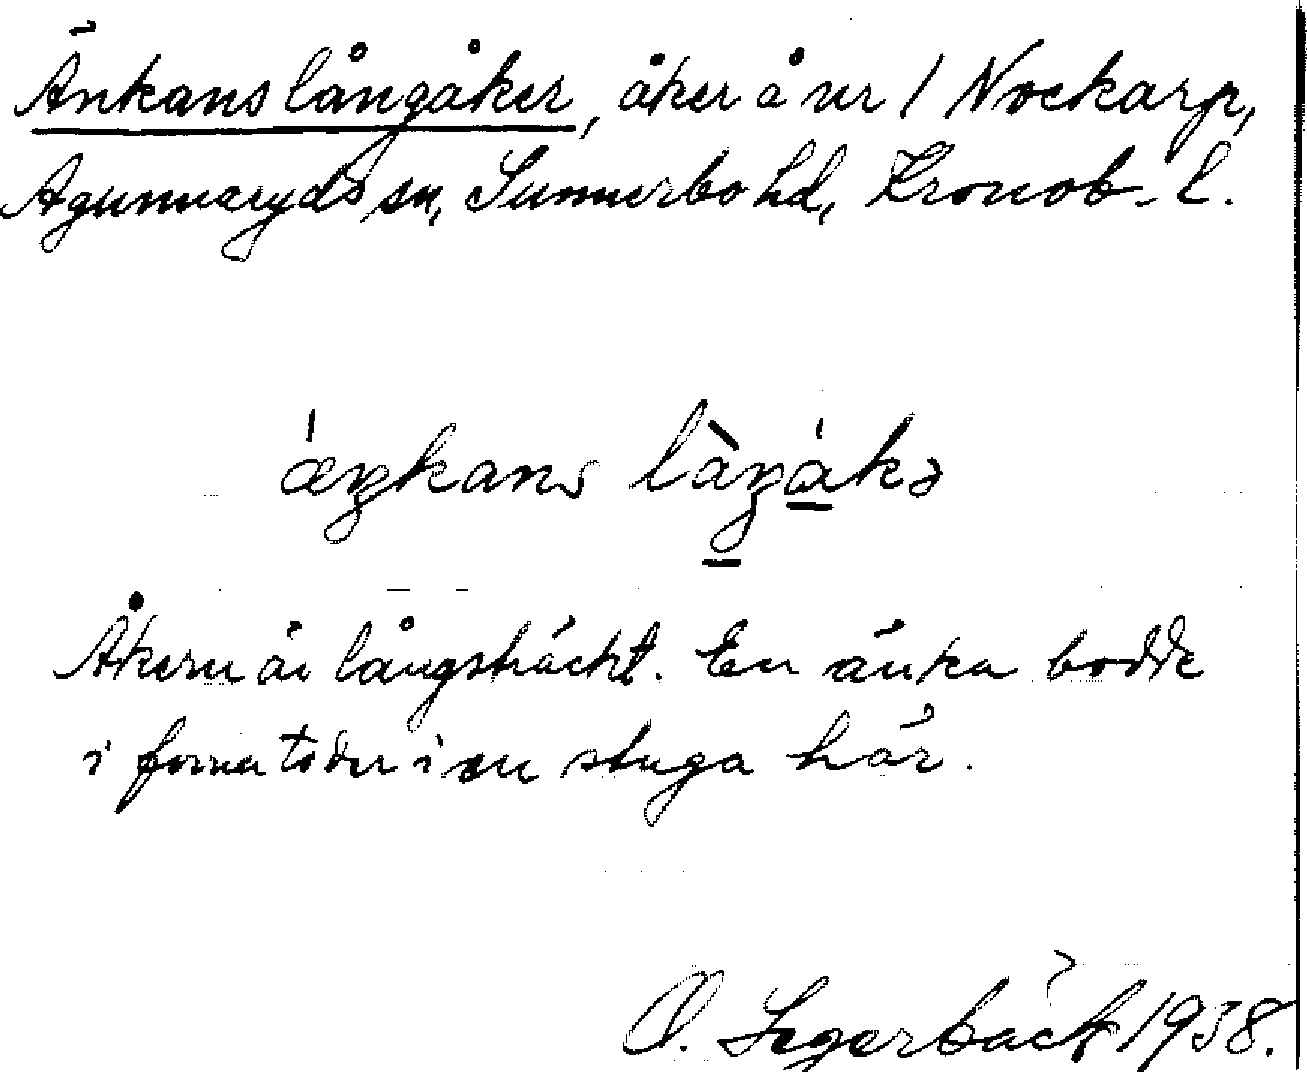 Änkans långåker, åker å nr 1 Nockarp,
Agunnaryds sn, Sunnerbo hd, Kronob. l.
ǽŋkans làŋákə
Åkern är långsträckt. En änka bodde
i forna tider i en stuga här.
O. Segerbäck 1938.